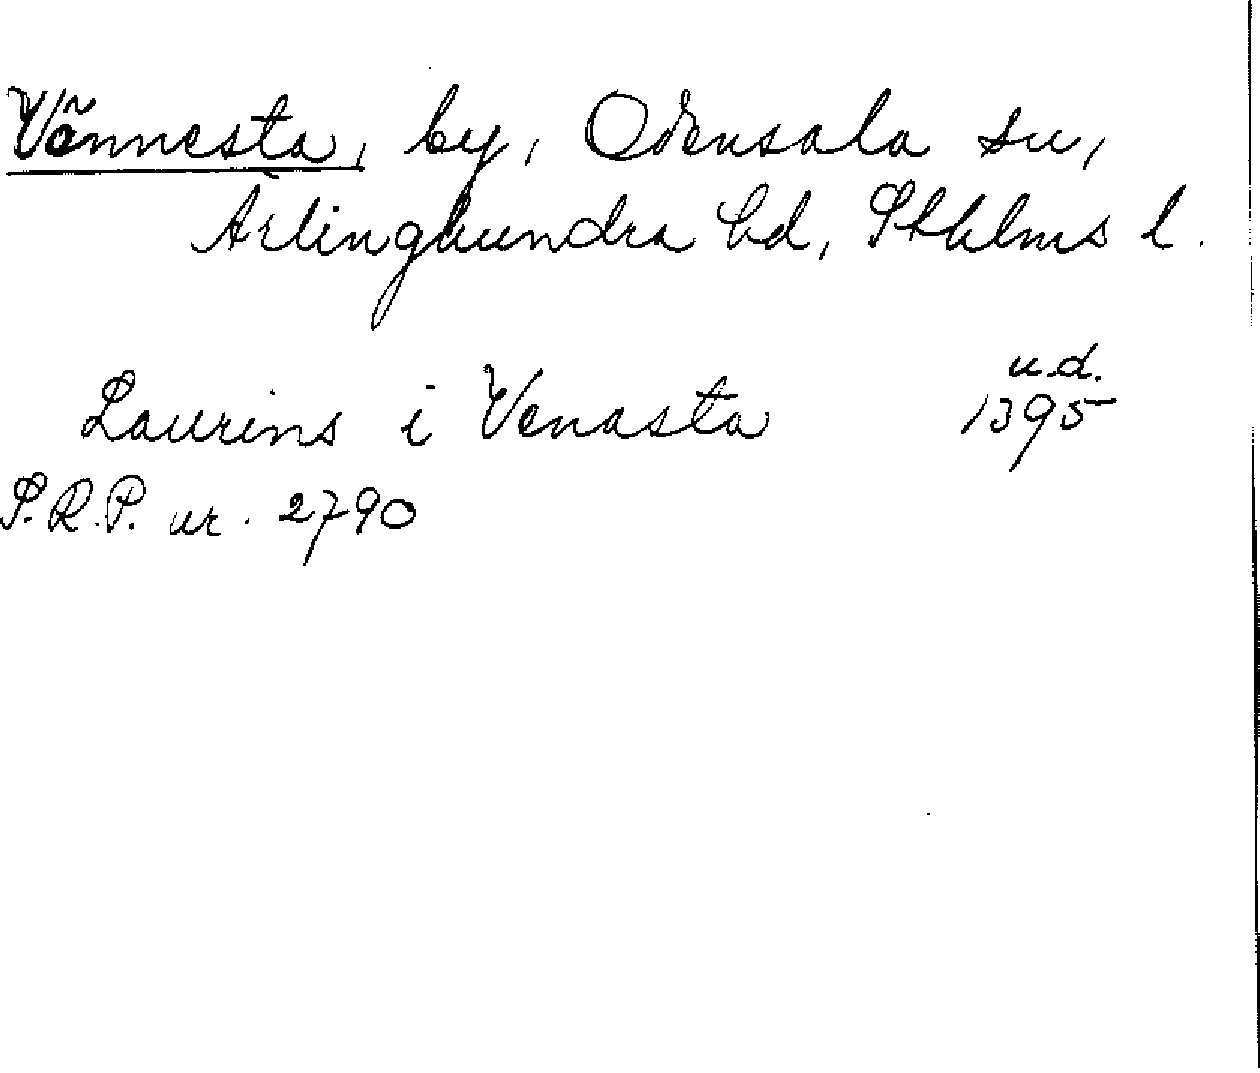 Vännesta, by, Odensala sn,
Ärlinghundra hd, Sthlms l.
u.d.
Laurens i Venasta 1395
S.R.P. nr. 2790